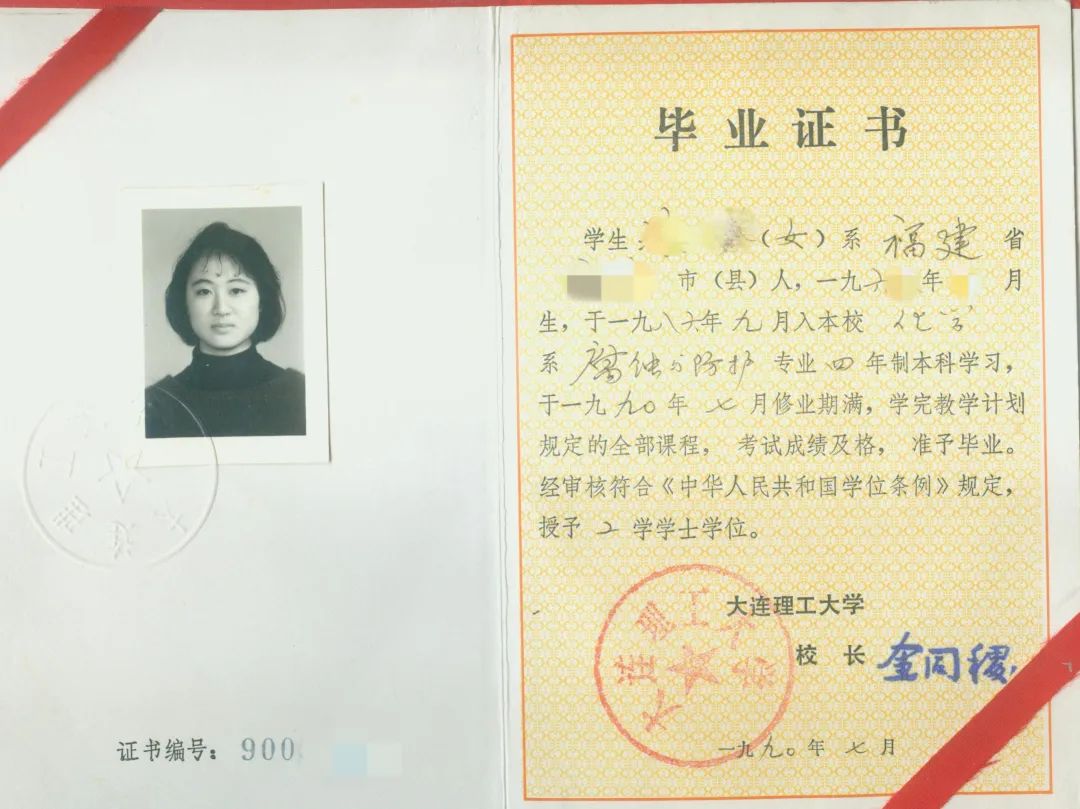 毕业证书
学生（女）系 福建 省
市（县）人，一九六 年 月
生，于一九八六年九月入本校 化学
系 腐蚀与防护 专业 四 年制本科学习，
于一九九〇年 七 月修业期满，学完教学计划
规定的全部课程， 考试成绩及格， 准予毕业。
经审核符合《中华人民共和国学位条例》规定，
授予 工 学学士学位。
大连理工大学
校 长 金同稷
一九九〇年 七 月
大连理工大学
大连理工
证书编号：900